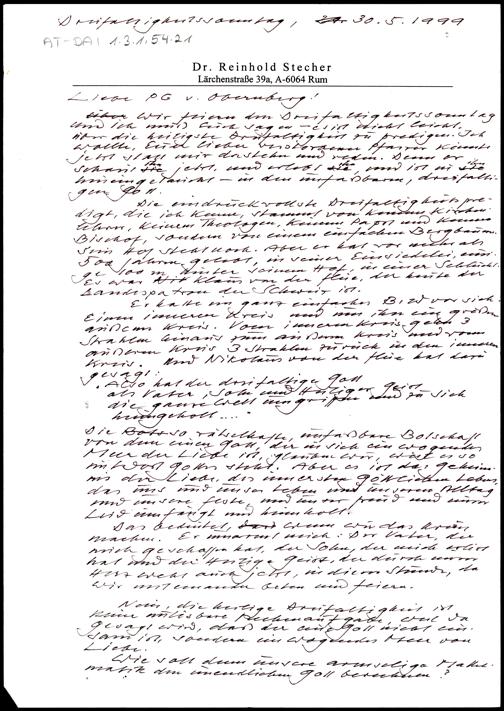 Dreifaltigkeitssonntag, 30.5.1999
AT-DAI 1.3.1.54.21
Dr. Reinhold Stecher
Lärchenstraße 39a, A-6064 Rum
Liebe PG v. Obernberg!
Wir feiern den Dreifaltigkeitssonntag
und ich muß Euch sagen es ist nicht leicht,
über die heiligste Dreifaltigkeit zu predigen. Ich
wollte, Euer lieber verstorbener Pfarrer könnte
jetzt statt mir dastehn und reden. Denn er
schaut sie jetzt, und erlebt sie, und ist in sie
hineingetaucht – in den unfaßbaren, dreifaltigen
Gott.
Die eindruckvollste Dreifaltigkeitspredigt,
die ich kenne, stammt von keinem Kirchenlehrer,
keinem Theologen, keinem Papst und keinem
Bischof, sondern von einem einfachen Bergbauern.
Sein Hof steht noch. Aber er hat vor mehr als
500 Jahren gelebt, in seiner Einsiedelei,
100 m hinter seinem Hof in einer Schlucht.
Es war Klaus von der Flüe, der heute der
Landespatron der Schweiz ist.
Er hatte ein ganz einfaches Bild vor sich
Einen inneren Kreis und um ihn ein größer
äußerer Kreis. Vom inneren Kreis gehen 3
Strahlen hinaus zum äußeren Kreis und vom
äußeren Kreis 3 Strahlen zurück in den inneren
Kreis. Und Nikolaus von der Flüe hat dazu
gesagt:
"Also hat der dreifaltige Gott
als Vater, Sohn und Heiliger Geist
die ganze Welt umgriffen und zu sich
heimgeholt..."
Die so rätselhafte, unfaßbare Botschaft
von dem einen Gott, der in sich ein wogendes
Meer der Liebe ist, glauben wir, weil es so
im Wort Gottes steht. Aber es ist das Geheimnis
der Liebe, des innersten göttlichen Lebens,
das uns und unser Leben und unseren Alltag
und unsere Feste und unsere Freud und unser
Leid umfängt und heimholt.
Das bedeutet, wenn wir das Kreuz
machen. Er umarmt mich: Der Vater, der
mich geschaffen hat, der Sohn, der mich erlöst
hat und der Heilige Geist, der durch unser
Herz weht auch jetzt, in dieser Stunde, da
wir miteinander beten und feiern.
Nein, die heilige Dreifaltigkeit ist
keine unlösbare Rechenaufgabe, weil da
gesagt wird, daß der eine Gott nicht einsam
ist, sondern ein wogendes Meer von
Liebe.
Wie soll denn unsere armselige Mathematik
den unendlichen Gott berechnen?